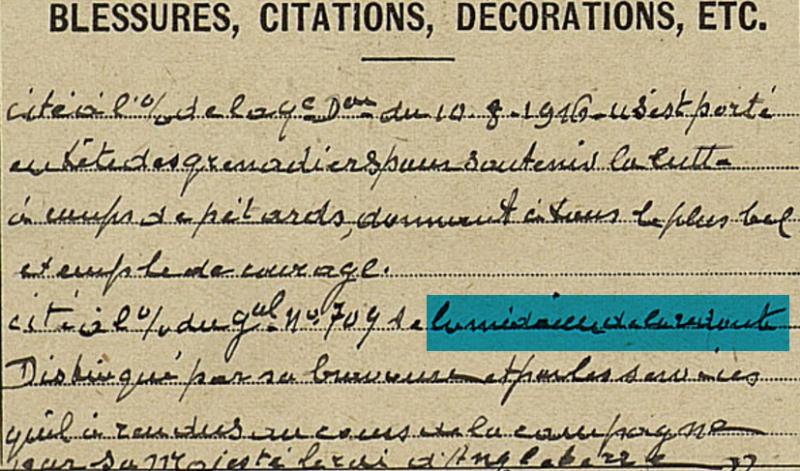 BLESSURES, CITATIONS, DÉCORATIONS, ETC.
cité à l'o/ de la 9e Don du 10.8.1916. s'est porté
en tête des grenadiers pour soutenir la lutte
à coups de pétards, donnant à tous le plus bel
exemple de courage.
cité à l'o/ du gal No 709 de la médaille de la
Distingué par sa bravoure et par les services
qu'il à rendus au cours de la campagne
par sa Majesté le roi d'Angleterre